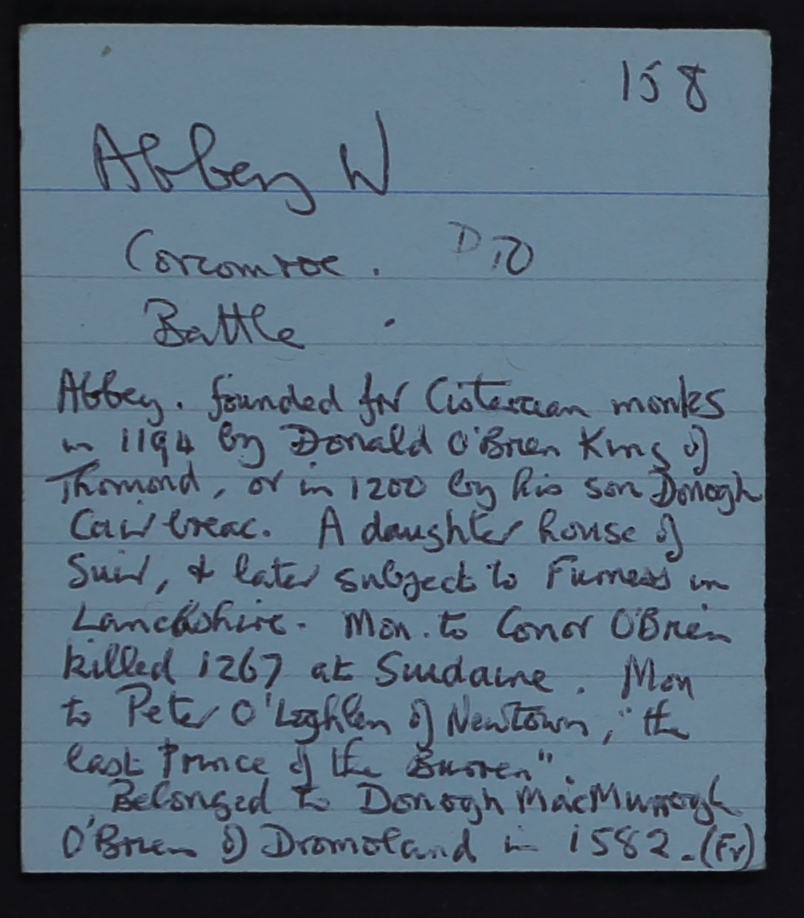 158
Abbey W
Corcomroe. D 10
Battle .
Abbey. founded for Cistercian monks
in 1194 by Donald O'Brien King of
Thomond, or in 1200 by his son Donogh
Cairbreac. A daughter house of
Suir, & later subject to Furness in
Lancashire. Mon. to Conor O'Brien
killed 1267 at Suidaine. Mon
to Peter O'Loghlen of Newtown, "the
last Prince of the Burren".
Belonged to Donogh MacMurrogh
O'Brien of Dromoland in 1582. (Fr)